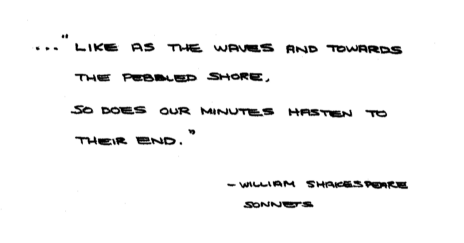 ..."LIKE AS THE WAVES AND TOWARDS
THE PEBBLED SHORE,
SO DOES OUR MINUTES HASTEN TO
THEIR END."
- WILLIAM SHAKESPEARE
SONNETS